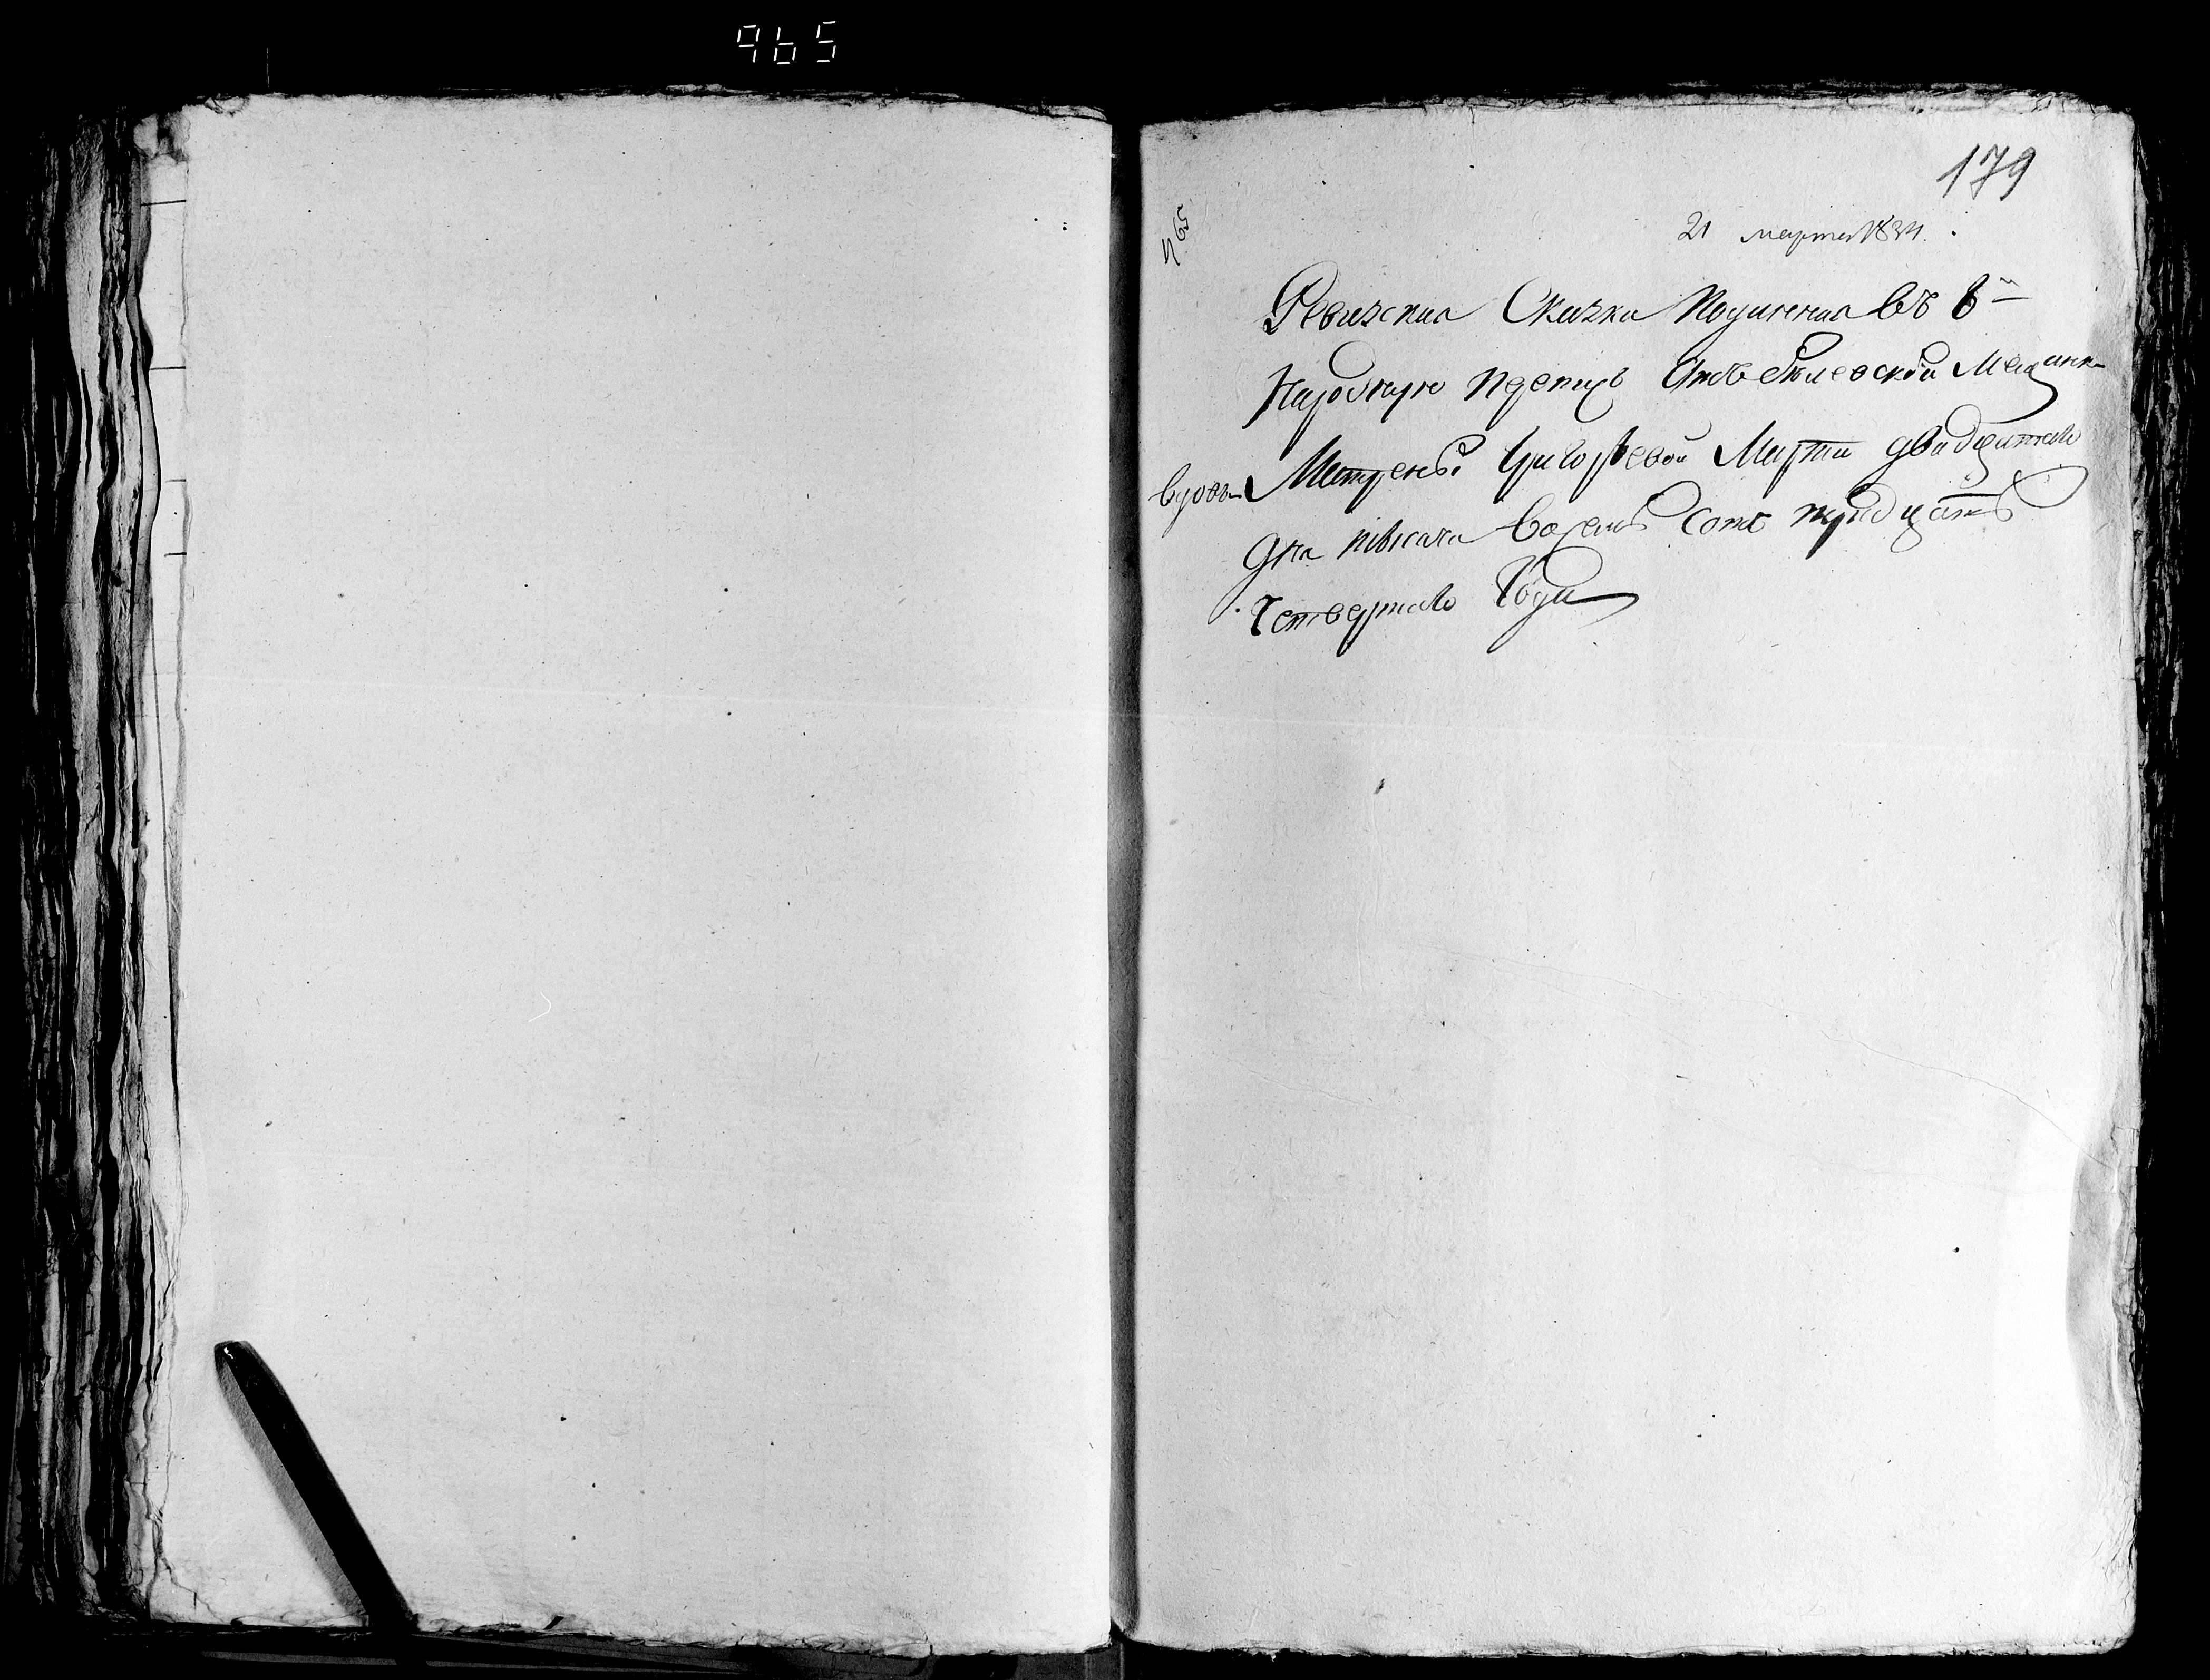 965
179
965
21 марта 1834.
Ревизская Сказка Поданная въ 8ю
Народную перепись Отъ Белевской Мещанк
вдовы Матрены Григорьевой Марта двадцатаго
дня тысяча восемь сотъ тридцать
Четвертаго Года